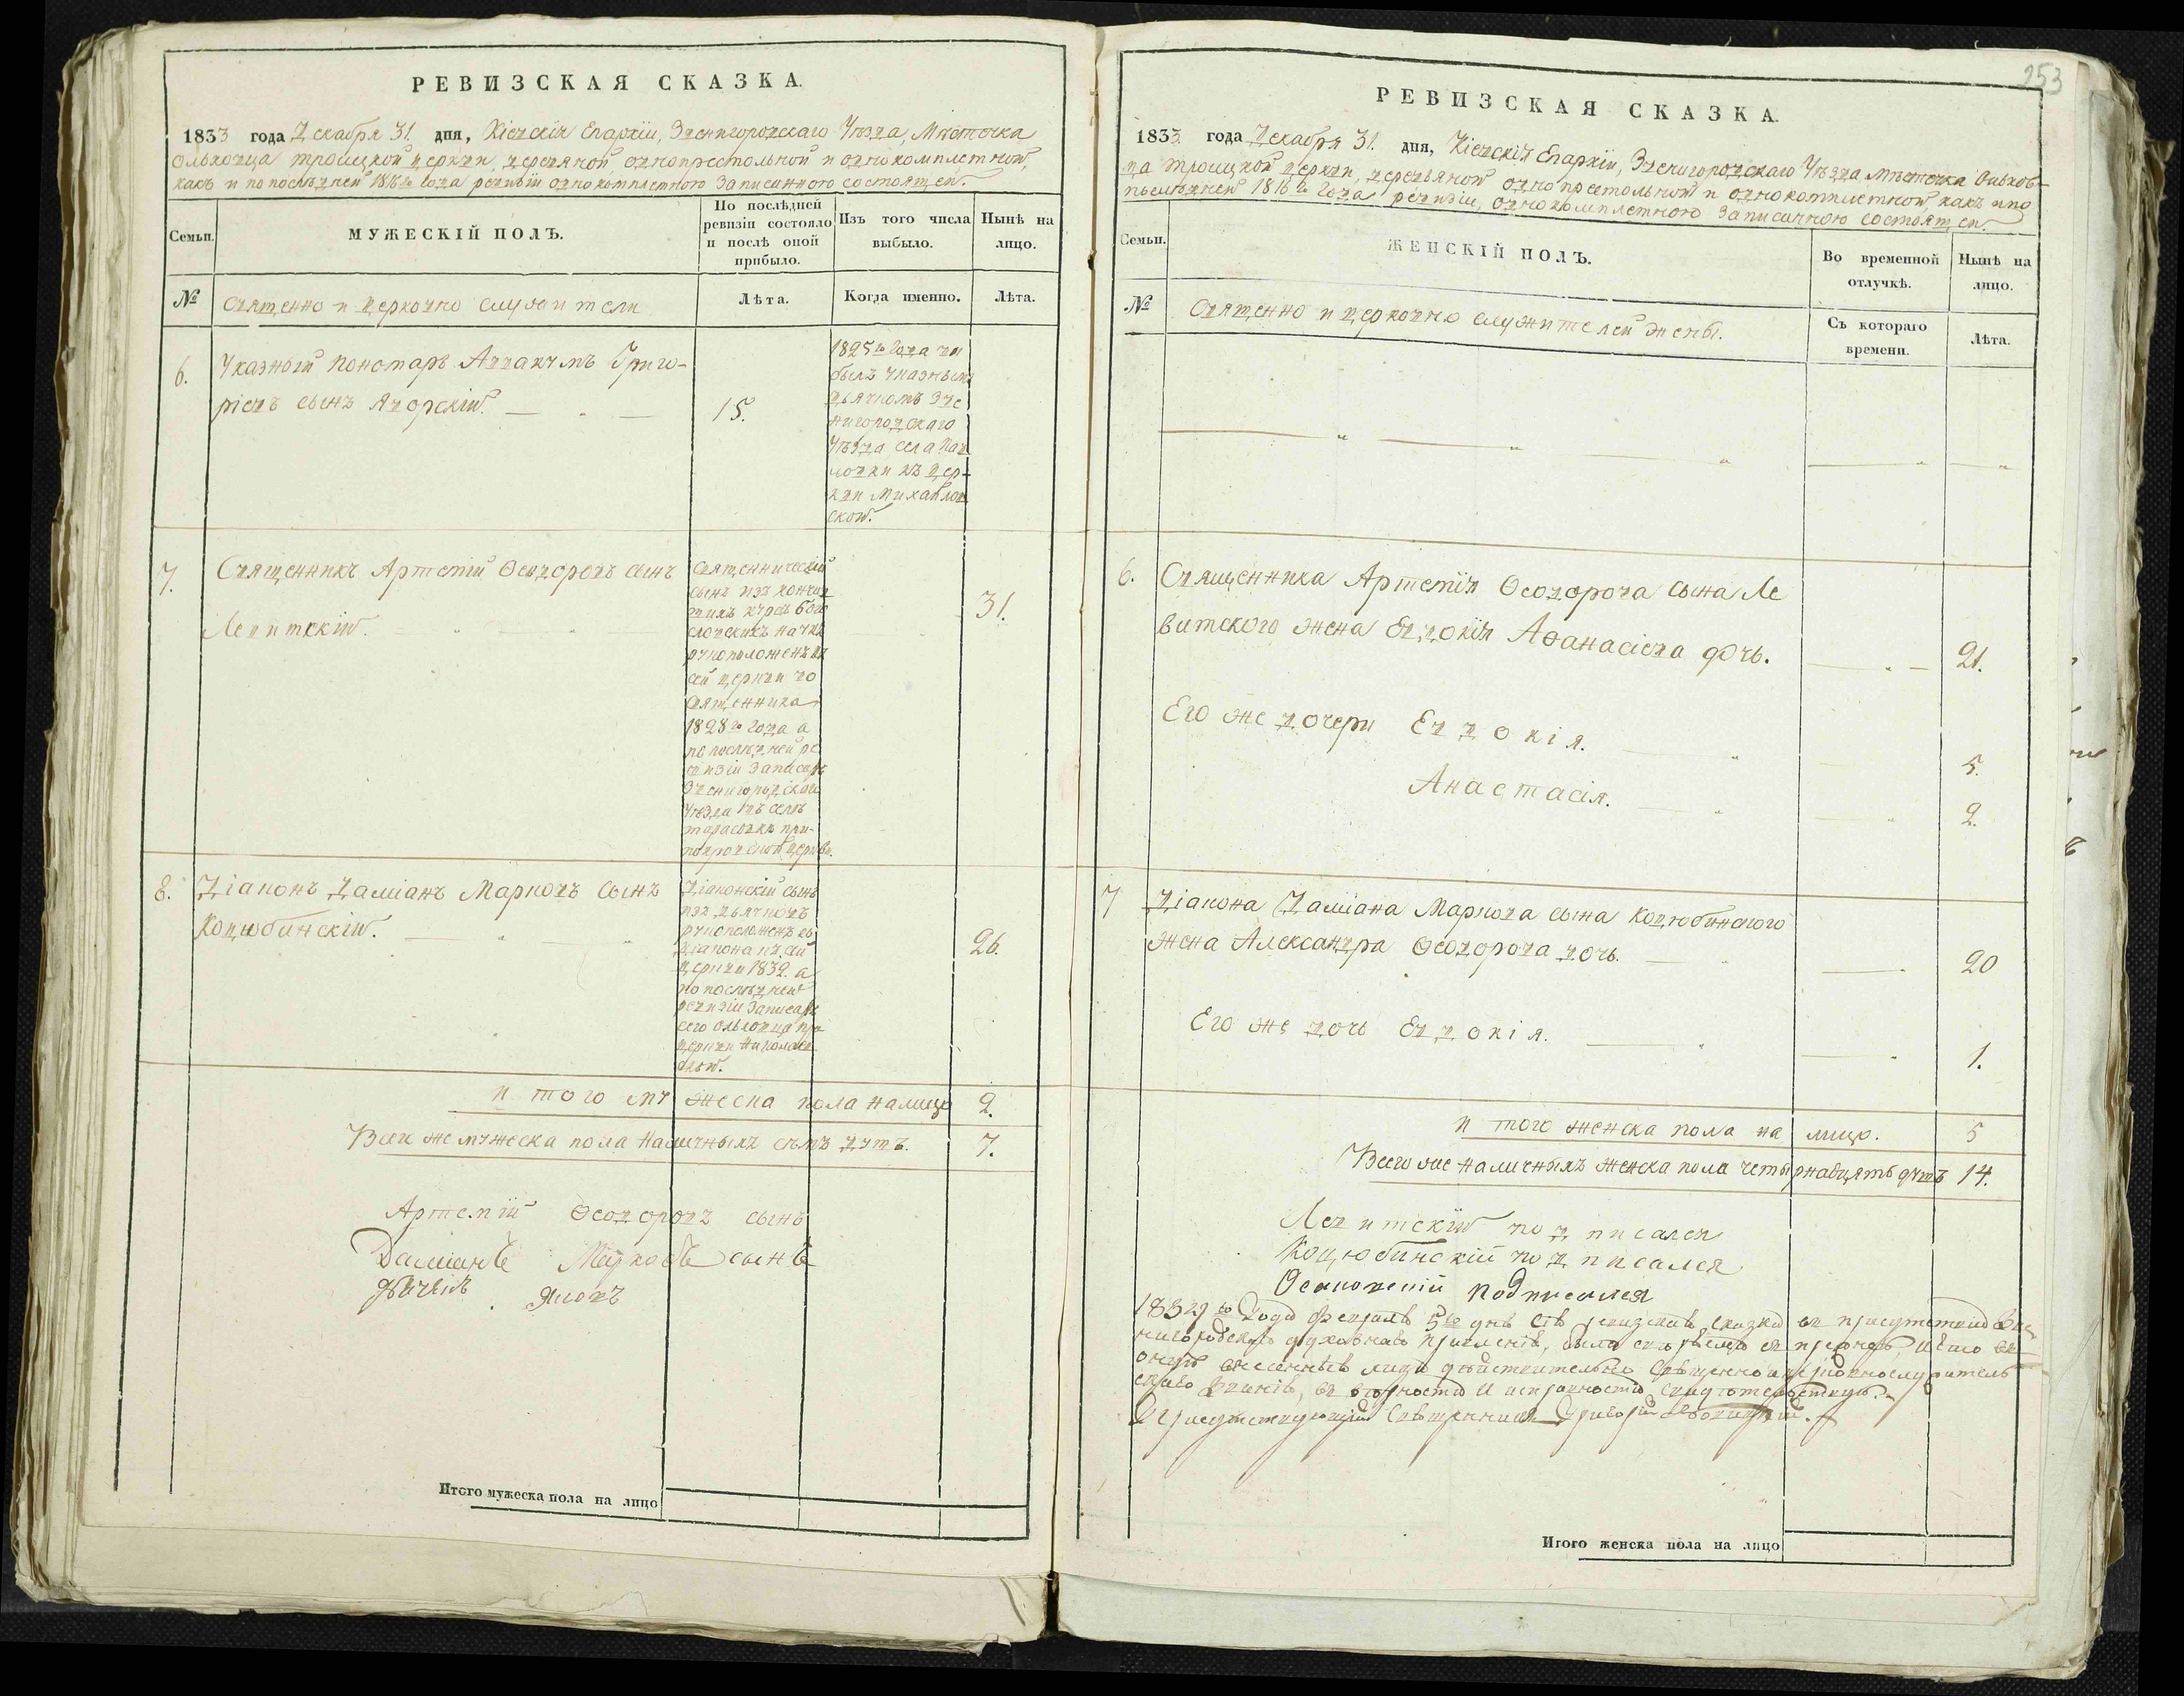 РЕВИЗСКАЯ СКАЗКА.
1833 года Декабря 31. дня, Кіевскія Епархіи, Звенигородскаго Уѣзда, Мѣстечка
Ольховца троицкой церкви, деревяной однопрестольной и однокомплетной,
какъ и по послѣдней 1816го года ревизіи однокомплетного записанного состоящей.
Семьи.
МУЖЕСКІЙ ПОЛЪ.
По послѣдней
ревизіи состояло
и послѣ оной
прибыло.
Изъ того числа
выбыло.
Нынѣ на
лицо.
№
Священно и церковно служители
Лѣта.
Когда именно.
Лѣта.
6.
Указной пономарь Аввакумъ Григо-
ріевъ сынъ Яворскій.
15.
1825го года вы
былъ указнымъ
дьячкомъ Зве
нигородскаго
Уѣзда села Пав
ловки къ цер-
кви Михайлов
ской.
7.
Священникъ Артемій Ѳеодоровъ сынъ
Левитскій.
священническій
сынъ изъ кончив
шихъ курсъ бого
словскихъ наукъ
рукоположенъ къ
сей церкви во
священника
1828го года а
по послѣдней ре
визіи записанъ
Звенигородскаго
Уѣзда въ селѣ
тарасовкѣ при
покровской церкви.
31.
8.
Діаконъ Даміанъ Марковъ сынъ
Коцюбинскій.
Діаконскій сынъ
изъ дьячковъ
рукоположенъ во
діакона къ сей
церкви 1832. а
по послѣдней
ревизіи записанъ
сего Ольховца при
церкви Николаев
ской.
26.
и того мужеска пола налицо 2.
Всѣхъ же мужеска пола наличныхъ семь душъ. 7.
Артемій Ѳеодоровъ сынъ
Даміанъ Марковъ сынъ
дьячекъ Яковъ
Итого мужеска пола на лицо
253
РЕВИЗСКАЯ СКАЗКА.
1833 года Декабря 31. дня, Кіевскія Епархіи, Звенигородскаго Уѣзда мѣстечка Ольхов-
ца троицкой церкви, деревьяной однопрестольной и однокомплетной какъ и по
послѣдней 1816го года ревизіи, однокомплетного записанного состоящей.
Семьи.
ЖЕНСКІЙ ПОЛЪ.
Во временной
отлучкѣ.
Нынѣ на
лицо.
№
Священно и церковно служителей жены.
Съ котораго
времени.
Лѣта.
6.
Священника Артемія Ѳеодорова сына Ле
витского жена Евдокія Аѳанасіева дочь. 21.
Его же дочери Евдокія. 5.
Анастасія. 2.
7
Діакона Даміана Маркова сына Коцюбинского
жена Александра Ѳеодорова дочь. 20
Его же дочь Евдокія. 1.
и того женска пола на лицо. 5
Всего же наличныхъ женска пола четырнадцять душъ 14.
Левитскій подписался
Коцюбинскій подписался
подписался
1834го Года Февраля 5го дня сія ревизская сказка въ присутствии Зве
нигородскаго духовнаго правленія, была
онную внесенные лица дѣйствительно священно и церковнослужитель
скаго званія, въ вѣрности и исправности свидѣтельствую.
Присутствующій Священникъ Григорій
Итого женска пола на лицо